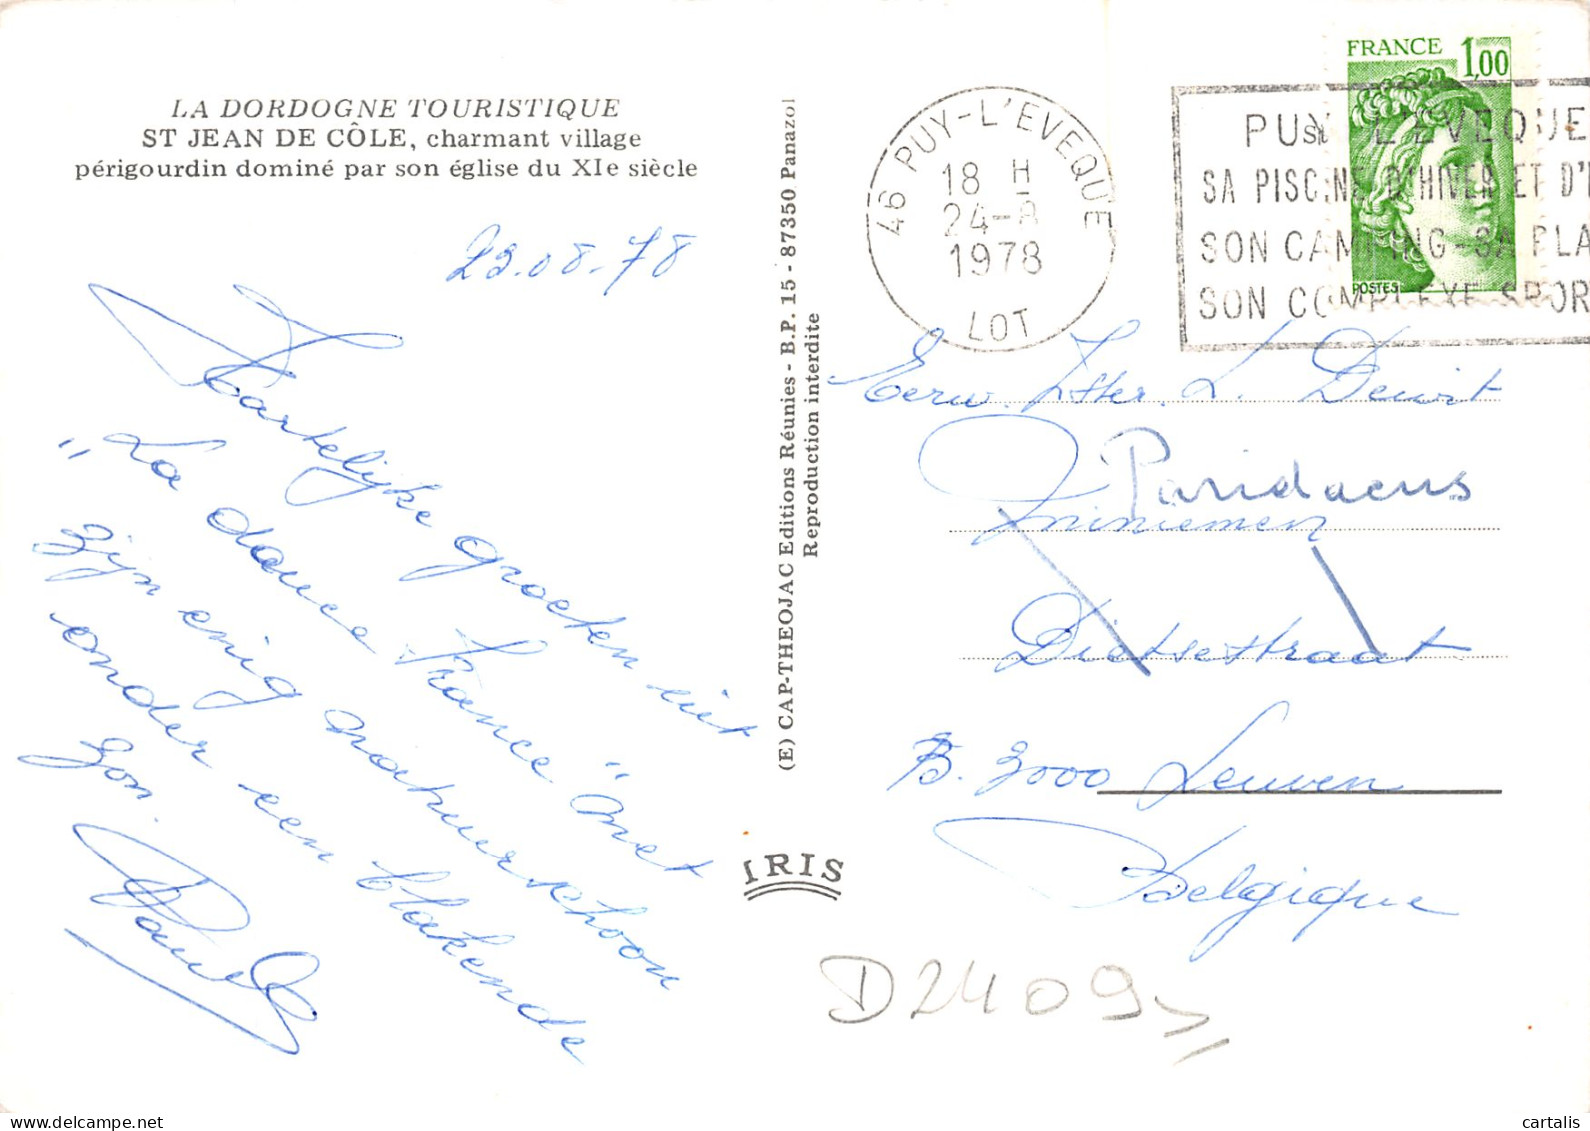 LA DORDOGNE TOURISTIQUE
ST JEAN DE CÔLE, charmant village
périgourdin dominé par son église du XIe siècle
23.08.78
Hartelijke groeten uit
"La douce France" met
zijn enig natuurschoon
onder een blakende
zon.
Paul
(E) CAP-THEOJAC Editions Réunies - B.P. 15 - 87350 Panazol
Reproduction interdite
IRIS
46 PUY-L'EVEQUE
18 H
24-8
1978
LOT
FRANCE 1,00
POSTES
PUY L'EVEQUE
SA PISCINE D'HIVER ET D'
SON CAMPING-SA PLA
SON COMPLEXE SPOR
Eerw. Zster. L.
Paridaens
Dietsestraat
B. 3000 Leuven
Belgique
D2409
cartalis
www.delcampe.net